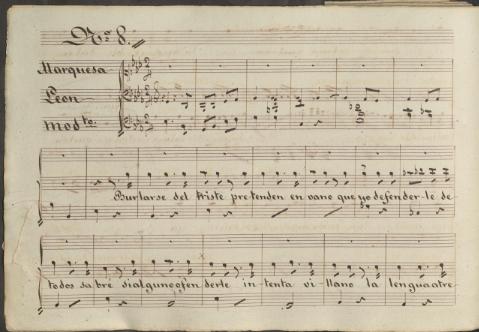 Nº 8.
Marquesa
Leon
Modto.
Burlarse del triste pretenden en vano que yo defender-le de
todos sabre si alguno ofen derle in-tenta vi-llano la lengua atre